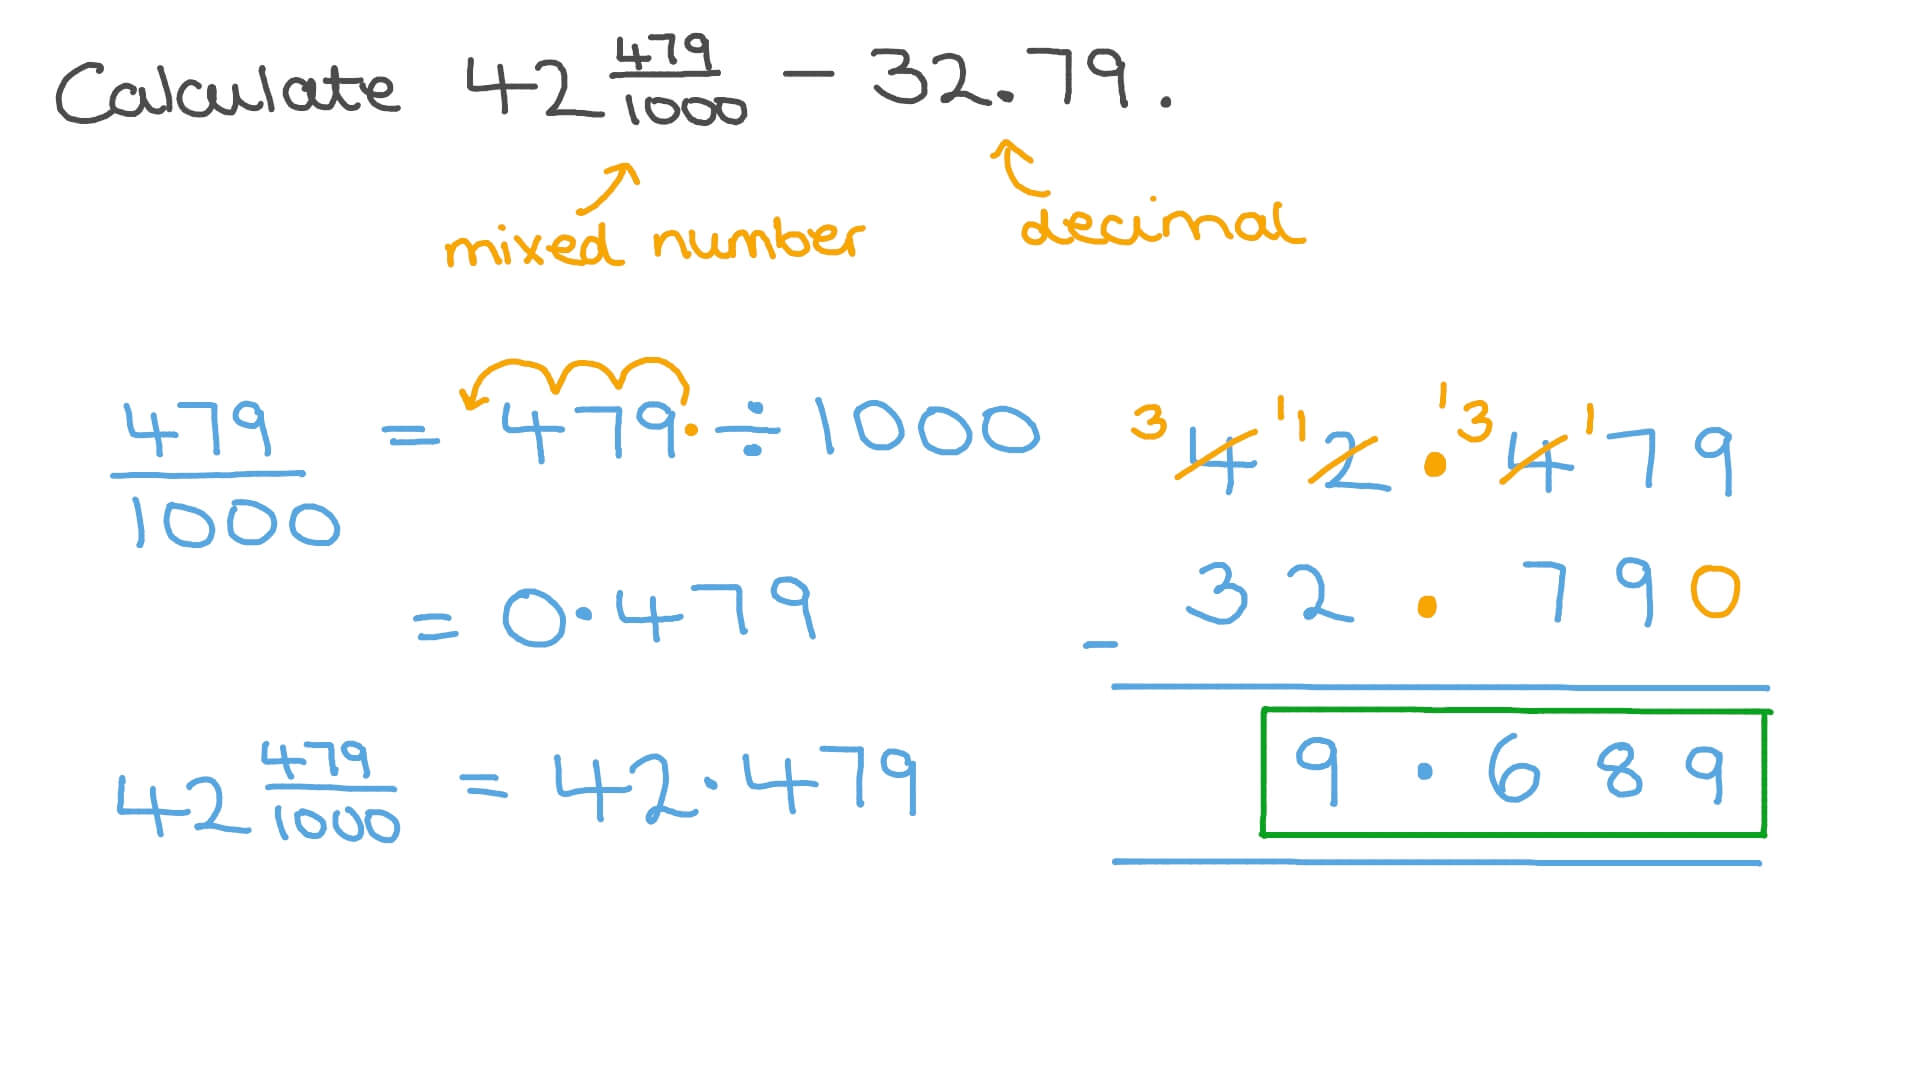 Calculate 42 479/1000 − 32.79.
mixed number
decimal
479/1000 = 479. ÷ 1000
= 0.479
42 479/1000 = 42.479
3 1 1 1 3 1
42.479
− 32.790
9.689